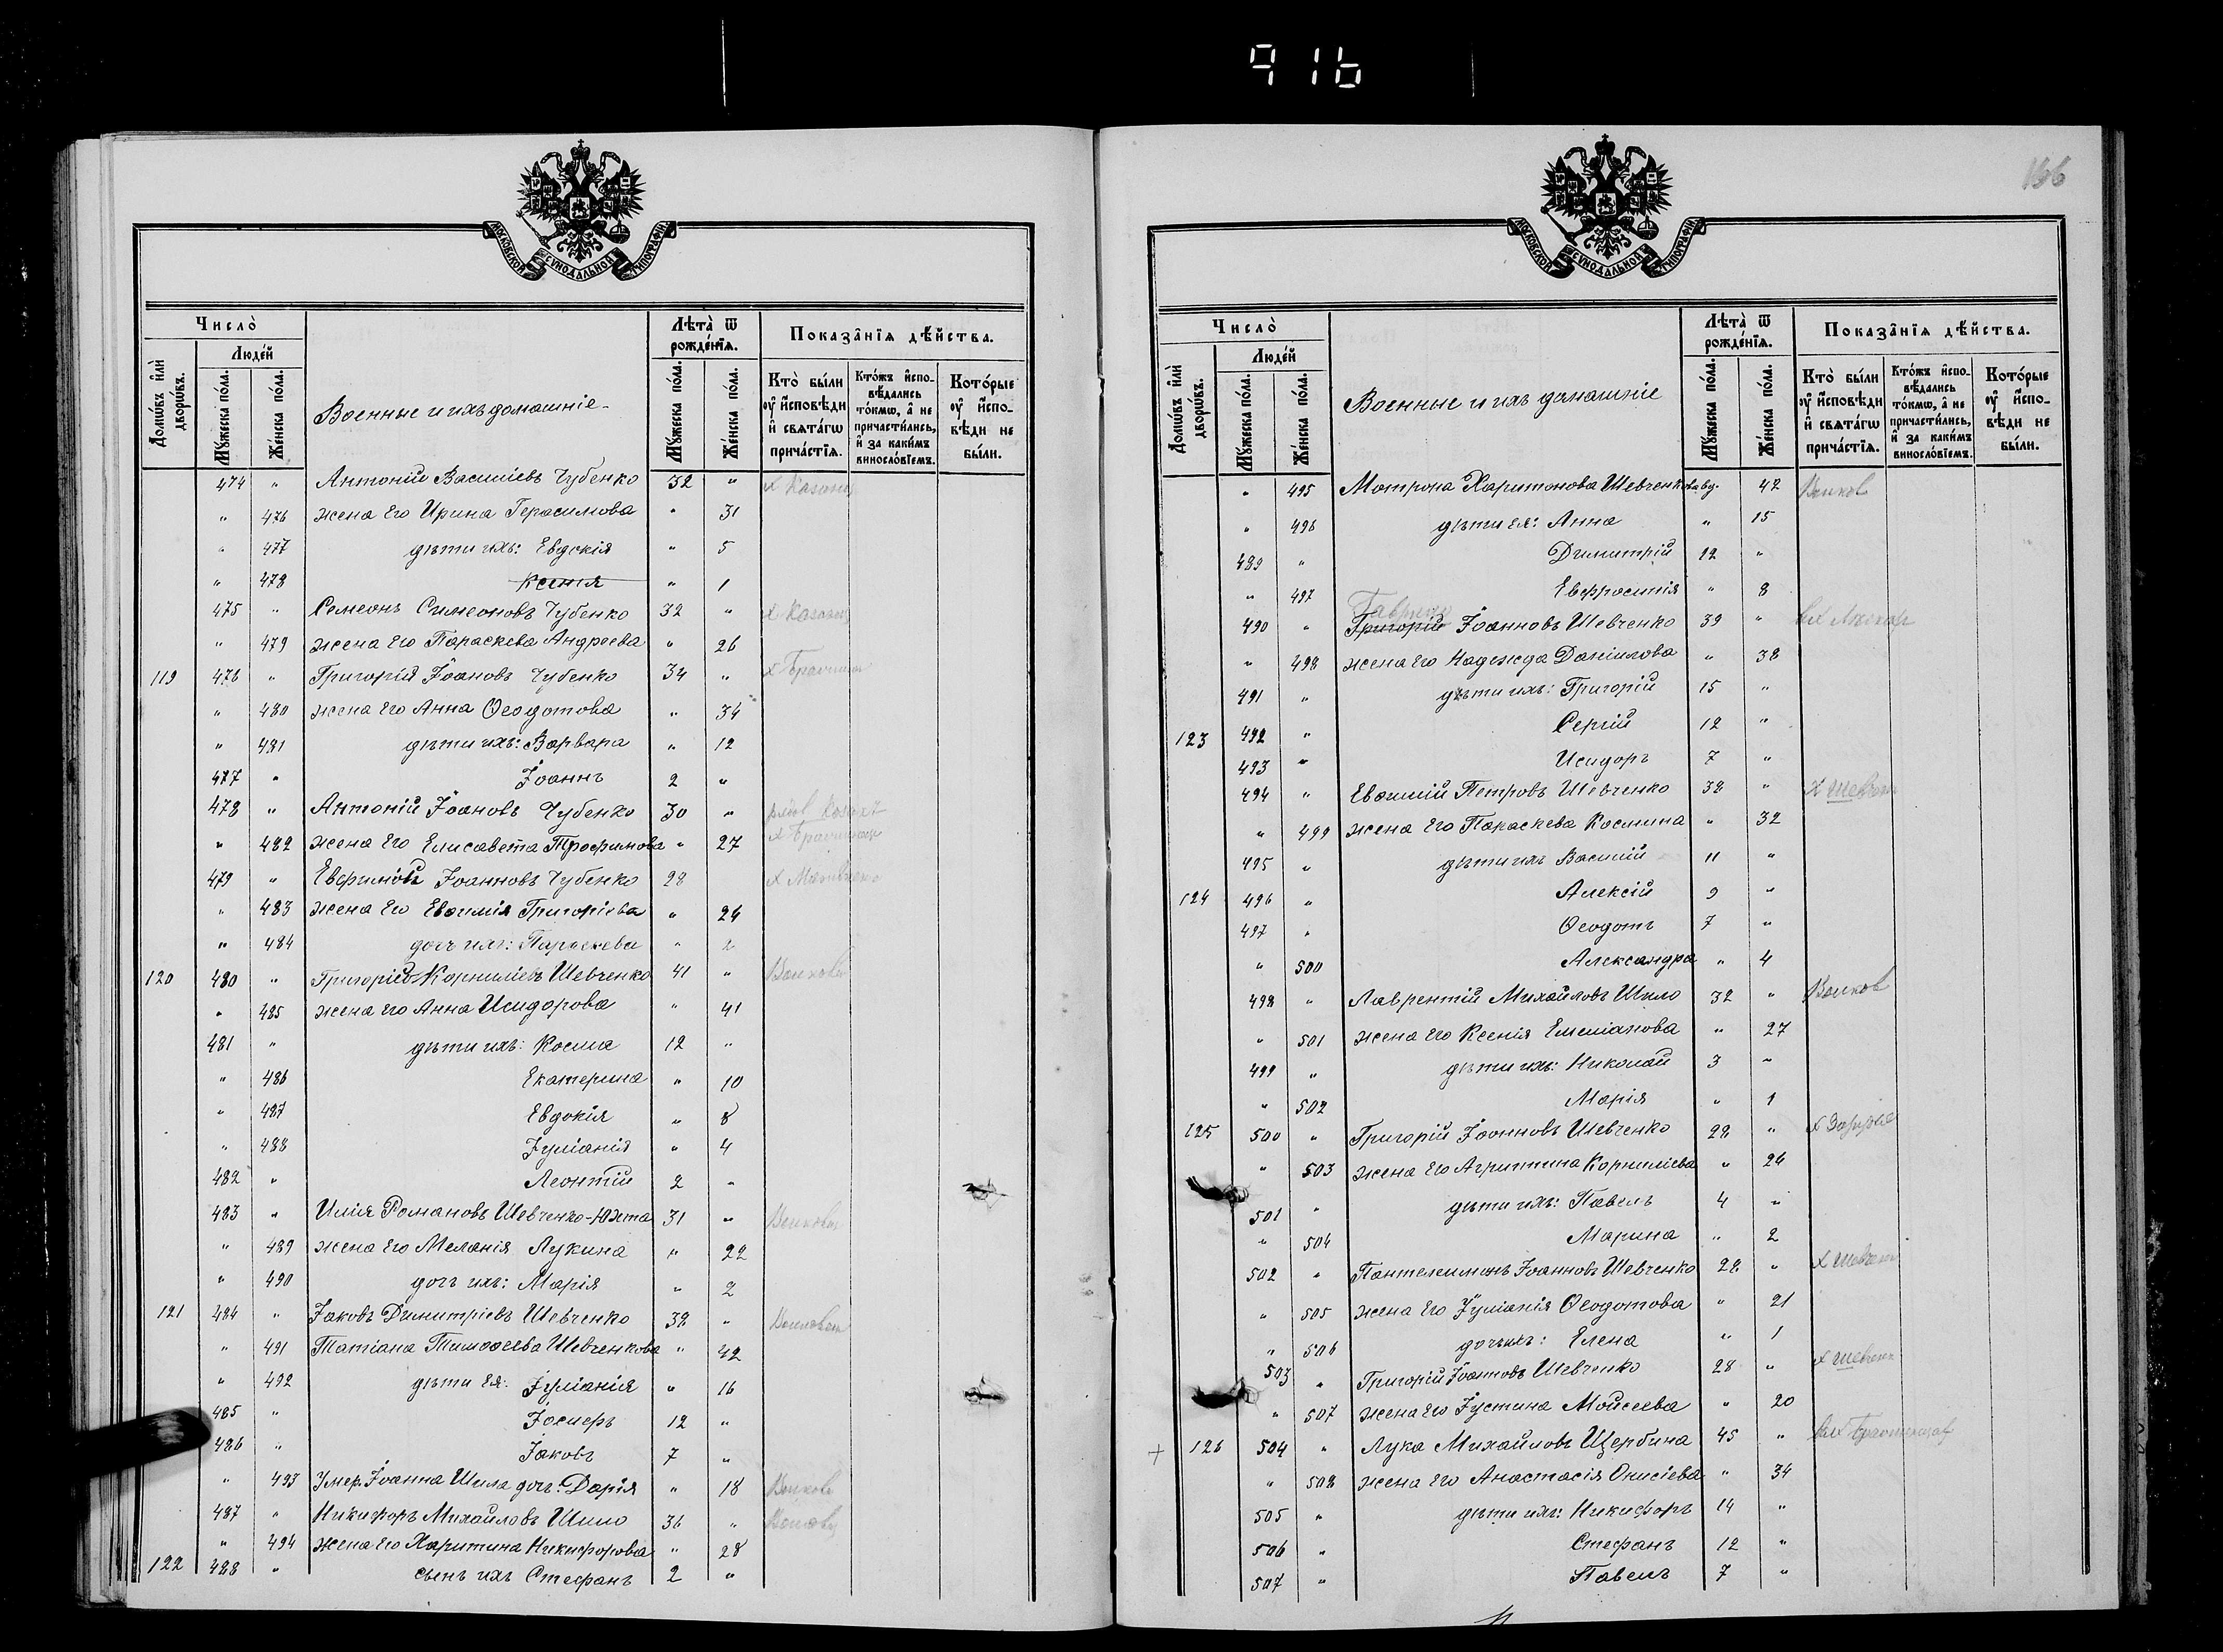 916
МОСКОВСКОЙ СѴНОДАЛЬНОЙ ТИПОГРАФІИ
Число̀
Людéй
Домѡ́въ и҆лѝ дворѡ́въ.
Мꙋ́жеска по́ла.
Же́нска по́ла.
Военные и ихъ домашніе
Лѣта̀ ѿ рожде́нїѧ.
Мꙋ́жеска по́ла.
Же́нска по́ла.
Показа̑нїѧ дѣ́йства.
Кто̀ бы́ли ᲂу҆ и҆́сповѣди и҆ свѧта́гѡ прича́стїѧ.
Кто́жъ и҆спо­вѣ́дались то́кмѡ, а҆ не причасти́лись, и҆ за каки́мъ виносло́вїемъ.
Кото́рые ᲂу҆ и҆́сповѣди не бы́ли.
474 " Антоній Василіевъ Чубенко 32 "
" 476 жена его Ирина Герасимова " 31
" 477 дѣти ихъ: Евдокія " 5
" 478 Ксенія " 1
475 " Симеонъ Симеоновъ Чубенко 32 "
" 479 жена его Параскева Андреева " 26
119 476 " Григорій Іоановъ Чубенко 34 "
" 480 жена его Анна Ѳеодотова " 34
" 481 дѣти ихъ: Варвара " 12
477 " Іоаннъ 2 "
478 " Антоній Іоановъ Чубенко 30 "
" 482 жена его Елисавета Трофимова " 27
479 " Евфимій Іоанновъ Чубенко 28
" 483 жена его Евѳимія Григоріева " 24
" 484 дочь ихъ: Параскева " 2
120 480 " Григорій Корниліевъ Шевченко 41 "
" 485 жена его Анна Исидорова " 41
481 " дѣти ихъ: Косма 12 "
" 486 Екатерина " 10
" 487 Евдокія " 8
" 488 Іуліанія " 4
482 " Леонтій 2 "
483 " Илія Романовъ Шевченко-Юхта 31 "
" 489 жена его Меланія Лукина " 22
" 490 дочь ихъ: Марія " 2
121 484 " Іаковъ Димитріевъ Шевченко 38 "
" 491 Татіана Тимоѳеева Шевченкова " 42
" 492 дѣти ея: Іуліанія " 16
485 " Іосифъ 12 "
486 " Іаковъ 7 "
" 493 Умер. Іоанна Шила доч: Дарія " 18
487 " Никифоръ Михайловъ Шило 36 "
" 494 жена его Харитина Никифорова " 28
122 488 " сынъ ихъ Стефанъ 2 "
166
МОСКОВСКОЙ СѴНОДАЛЬНОЙ ТИПОГРАФІИ
Число̀
Людéй
Домѡ́въ и҆лѝ дворѡ́въ.
Мꙋ́жеска по́ла.
Же́нска по́ла.
Военные и ихъ домашніе
Лѣта̀ ѿ рожде́нїѧ.
Мꙋ́жеска по́ла.
Же́нска по́ла.
Показа̑нїѧ дѣ́йства.
Кто̀ бы́ли ᲂу҆ и҆́сповѣди и҆ свѧта́гѡ прича́стїѧ.
Кто́жъ и҆спо­вѣ́дались то́кмѡ, а҆ не причасти́лись, и҆ за каки́мъ виносло́вїемъ.
Кото́рые ᲂу҆ и҆́сповѣди не бы́ли.
" 495 Мотрона Харитонова Шевченкова вд. 42
" 496 дѣти ея: Анна " 15
489 " Димитрій 12 "
" 497 Евфросинія " 8
490 " Григорій Іоанновъ Шевченко 39 "
" 498 жена его Надежда Даніилова " 38
491 " дѣти ихъ: Григорій 15 "
123 492 " Сергій 12 "
493 " Исидоръ 7 "
494 " Евѳимій Петровъ Шевченко 38 "
" 499 жена его Параскева Космина " 32
495 " дѣти ихъ Василій 11 "
124 496 " Алексій 9 "
497 " Ѳеодотъ 7 "
" 500 Александра " 4
498 " Лаврентій Михайловъ Шило 32 " Волков
" 501 жена его Ксенія Емеліанова " 27
499 " дѣти ихъ: Николай 3 "
" 502 Марія " 1
125 500 " Григорій Іоанновъ Шевченко 28 "
" 503 жена его Агрипина Корниліева " 24
501 " дѣти ихъ: Павелъ 4 "
" 504 Марина " 2
502 " Пантелеимонъ Іоанновъ Шевченко 28 "
" 505 жена его Іуліанія Ѳеодотова " 21
" 506 дочь ихъ: Елена " 1
503 " Григорій Іоанновъ Шевченко 28 "
" 507 жена его Іустина Мойсеева " 20
+ 126 504 " Лука Михайловъ Щербина 45 "
" 508 жена его Анастасія Онисіева " 34
505 " дѣти ихъ: Никифоръ 14 "
506 " Стефанъ 12 "
507 " Павелъ 7 "